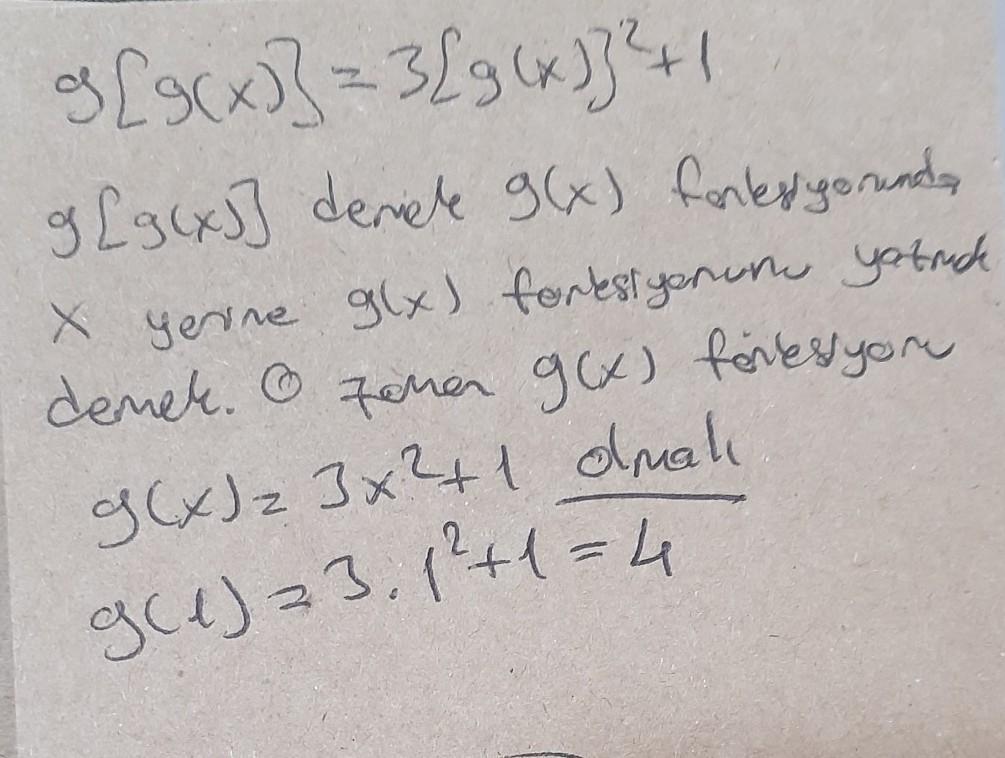 g[g(x)] = 3[g(x)]²+1
g[g(x)] demek g(x) fonksiyonunda
x yerine g(x) fonksiyonunu yazmak
demek. O zaman g(x) fonksiyonu
g(x) = 3x²+1 olmalı
g(1) = 3.1²+1 = 4